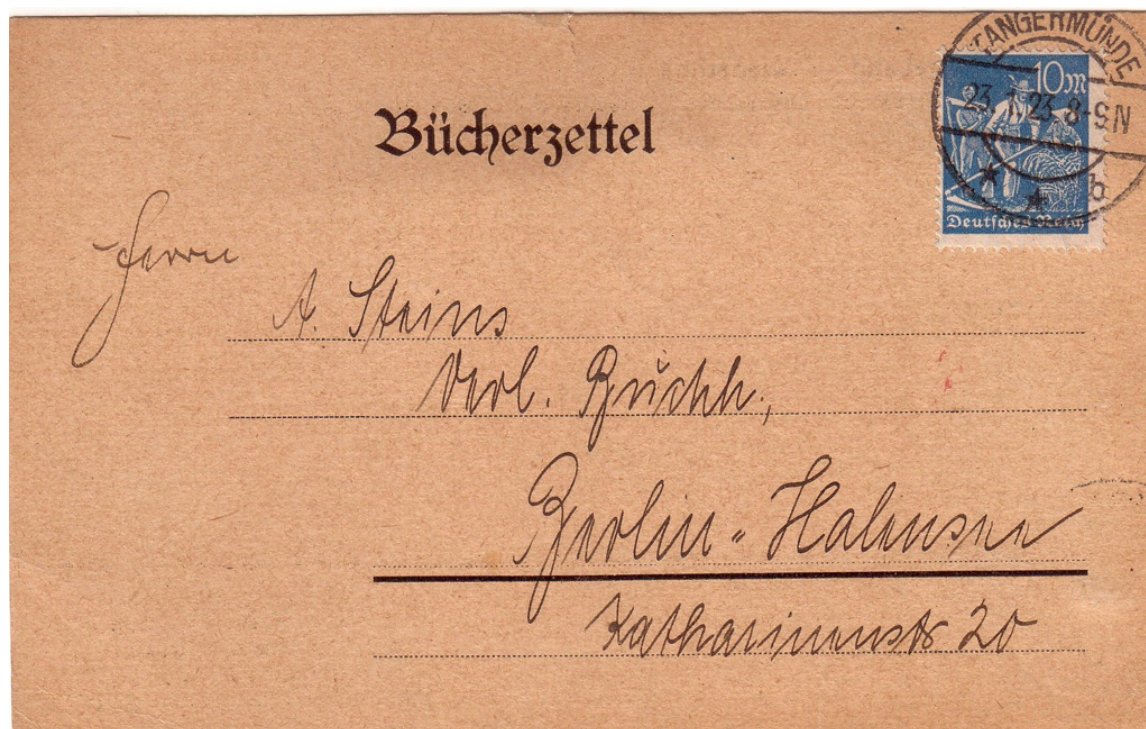 TANGERMÜNDE
10 M
23.1.23.8-9N
* * b
Deutsches Reich
Bücherzettel
Herrn
A. Steins
Verl. Buchh.,
Berlin-Halensee
Katharinenstr 20